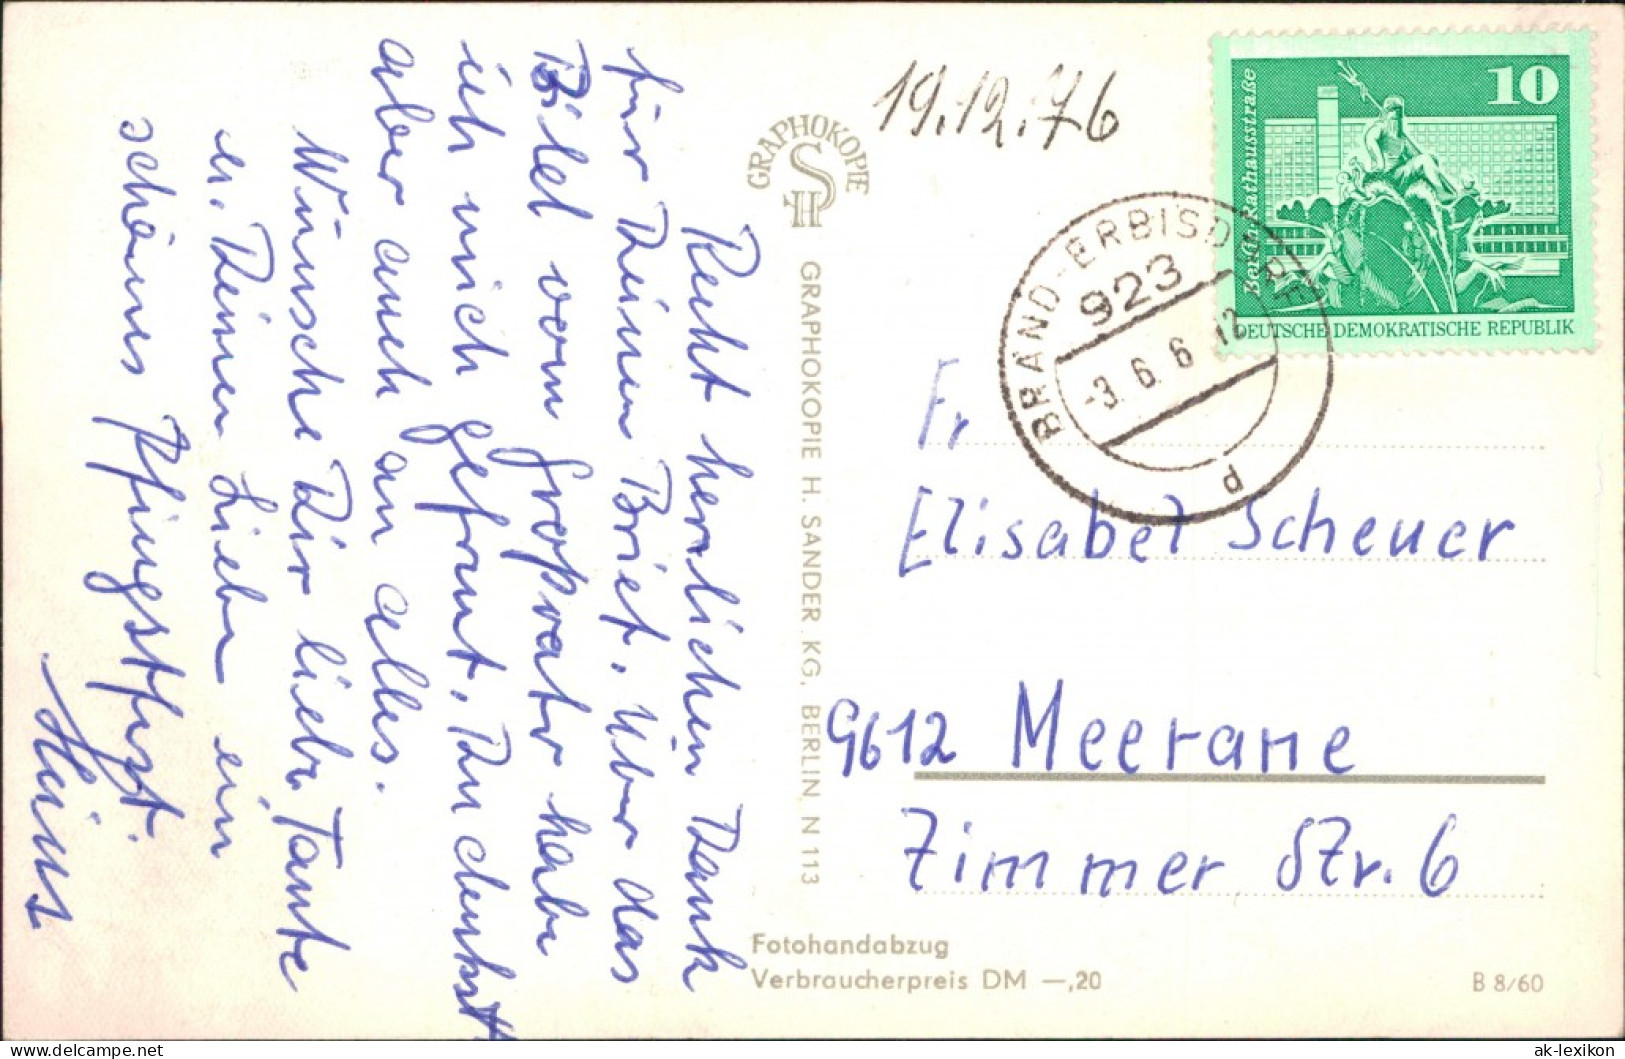 Recht herzlichen Dank
für Deinen Brief. Über das
Bild vom Großvater habe
ich mich gefreut. Du denkst
aber auch an alles.
Wünsche Dir liebe Tante
u. Deinen Lieben ein
schönes Pfingstfest.
Heinz
19.12.76
GRAPHOKOPIE
HS
GRAPHOKOPIE H. SANDER KG, BERLIN N 113
10
Berlin, Rathausstraße
DEUTSCHE DEMOKRATISCHE REPUBLIK
BRAND-ERBISDORF
923
-3. 6. 6 12
d
Fr
Elisabet Scheuer
9612 Meerane
Zimmer Str. 6
Fotohandabzug
Verbraucherpreis DM —,20
B 8/60
www.delcampe.net
ak-lexikon